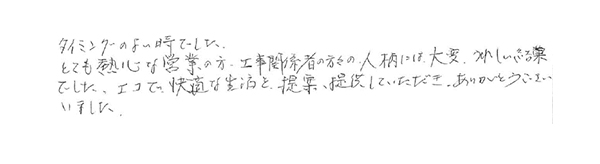 タイミングのよい時でした。
とても熱心な営業の方、工事関係者の方々の人柄には、大変、嬉しい結果
でした、エコで、快適な生活を、提案、提供していただき、ありがとうござい
いました。